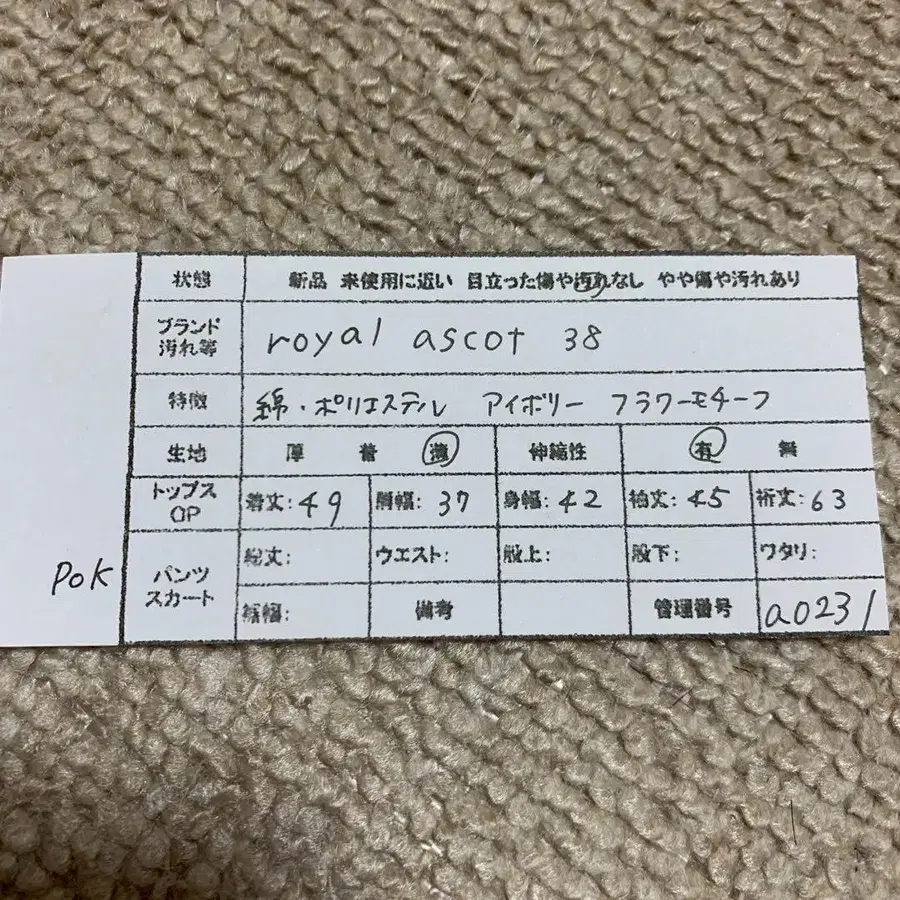 状態 新品 未使用に近い 目立った傷や汚れなし やや傷や汚れあり
ブランド
汚れ等
royal ascot 38
特徴 綿・ポリエステル アイボリー フラワーモチーフ
生地 厚 普 薄 伸縮性 有 無
トップス
OP
着丈: 49 肩幅: 37 身幅: 42 袖丈: 45 裄丈: 63
パンツ
スカート
総丈: ウエスト: 股上: 股下: ワタリ:
裾幅: 備考 管理番号 a0231
POK